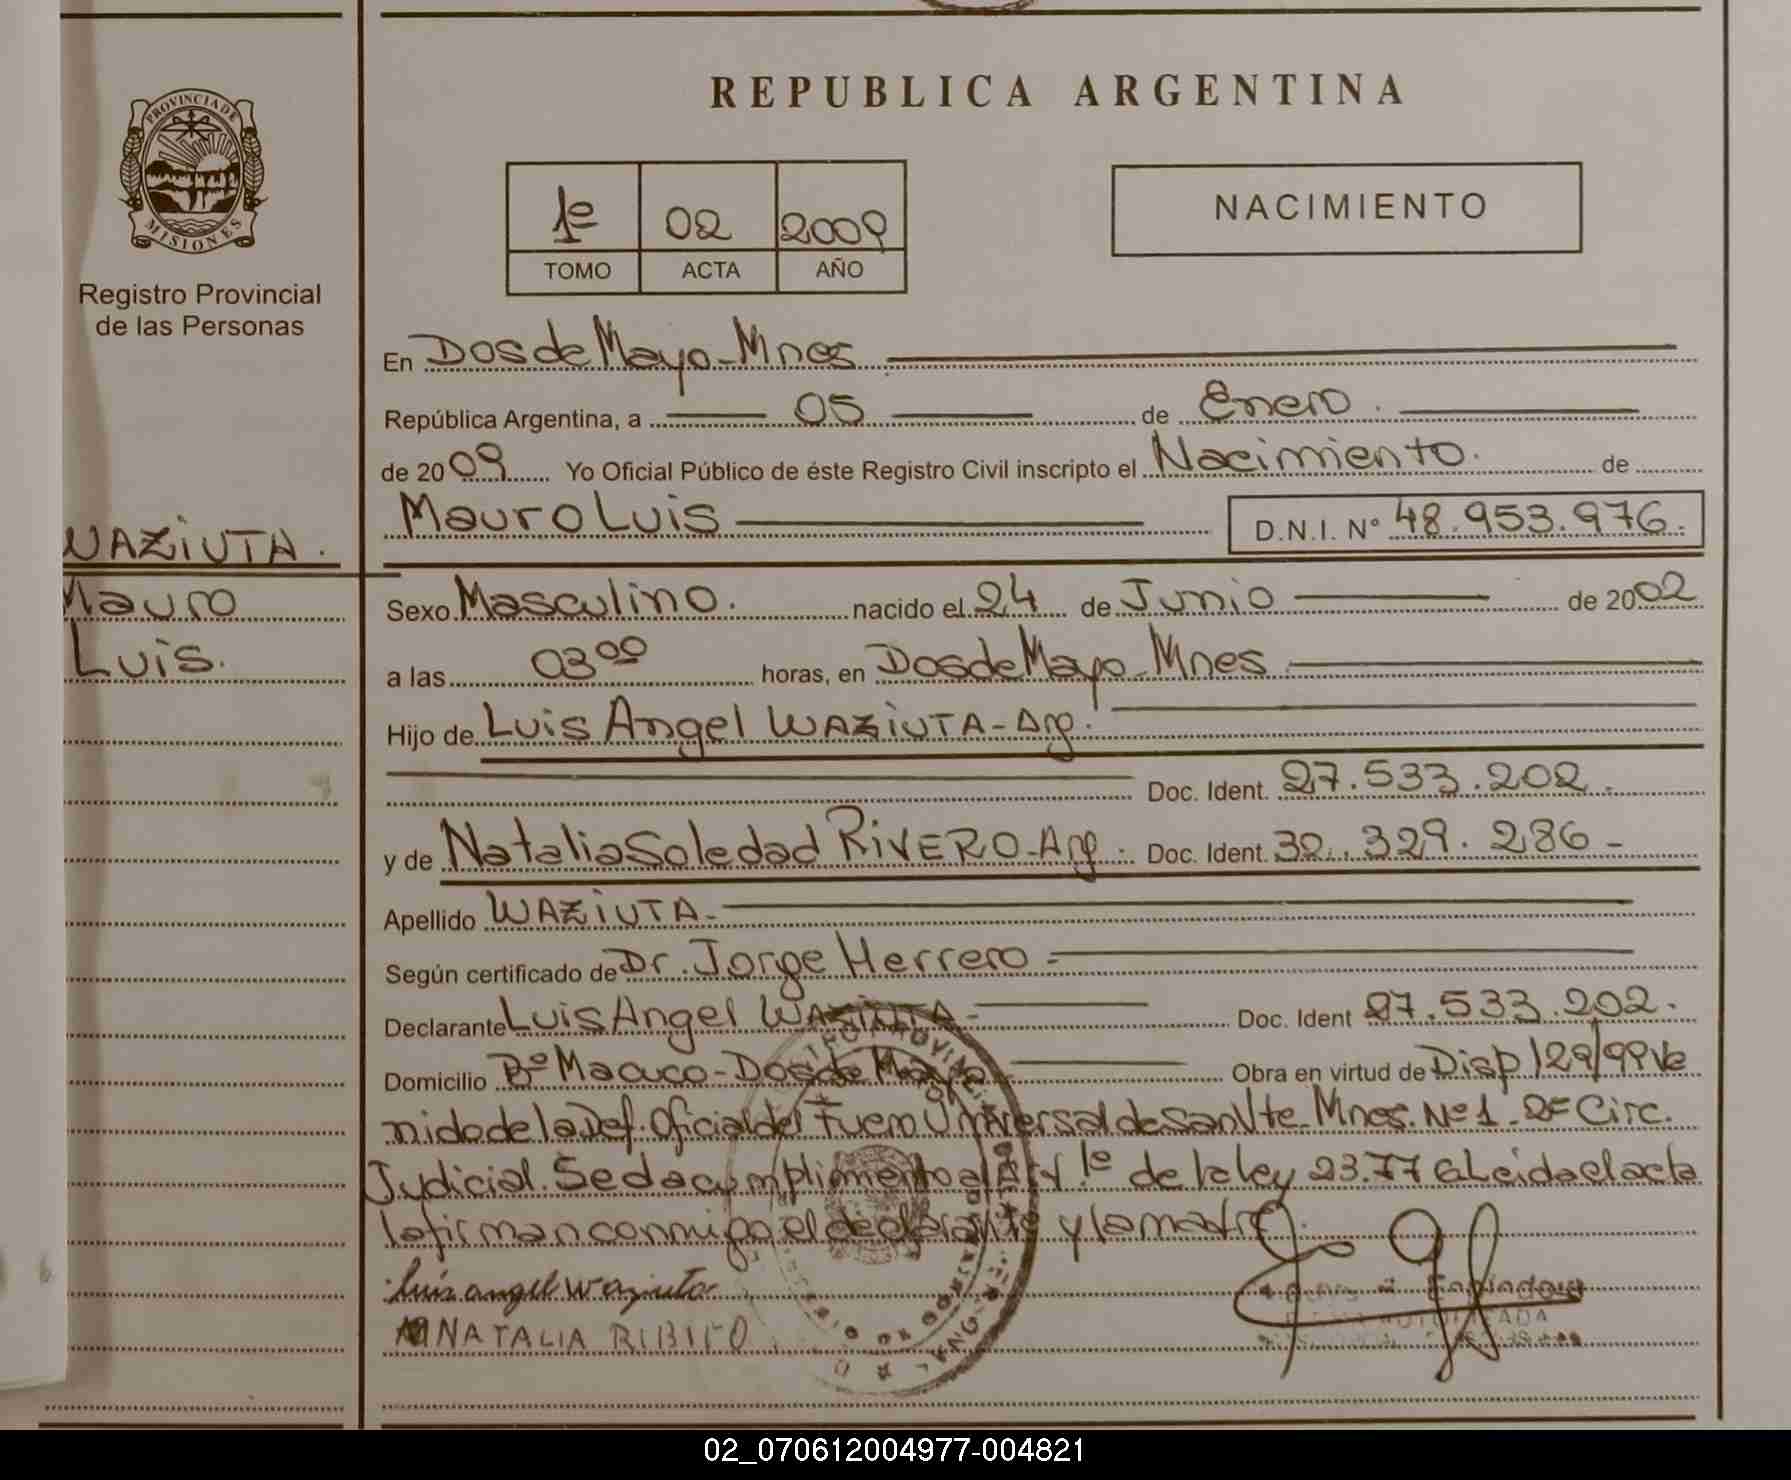 PROVINCIA DE
MISIONES
Registro Provincial
de las Personas
WAZIUTA.
Mauro
Luis.
REPUBLICA ARGENTINA
1º 02 2009
TOMO ACTA AÑO
NACIMIENTO
En Dos de Mayo - Mnes
República Argentina, a 05 de Enero.
de 2009 Yo Oficial Público de éste Registro Civil inscripto el Nacimiento. de
Mauro Luis D.N.I. Nº 48.953.976.
Sexo Masculino. nacido el 24 de Junio de 2002
a las 03 00 horas, en Dos de Mayo - Mnes
Hijo de Luis Angel WAZIUTA - Arg.
Doc. Ident. 27.533.202.
y de Natalia Soledad RIVERO - Arg. Doc. Ident. 30.329.286 -
Apellido WAZIUTA -
Según certificado de Dr. Jorge Herrero -
Declarante Luis Angel WAZIUTA - Doc. Ident 27.533.202.
Domicilio Bº Macuco - Dos de Mayo Obra en virtud de Disp 129/99 Ve
nido de la Def. Oficial del Fuero Universal de San Vte. Mnes. Nº 1 - 2º Circ.
Judicial. Se da cumplimento al Art. 1º de la ley 23.776 Leida el acta
la firman conmigo el declarante y la madre.
Luis angel waziuta
NATALIA RIBIFO
02_070612004977-004821